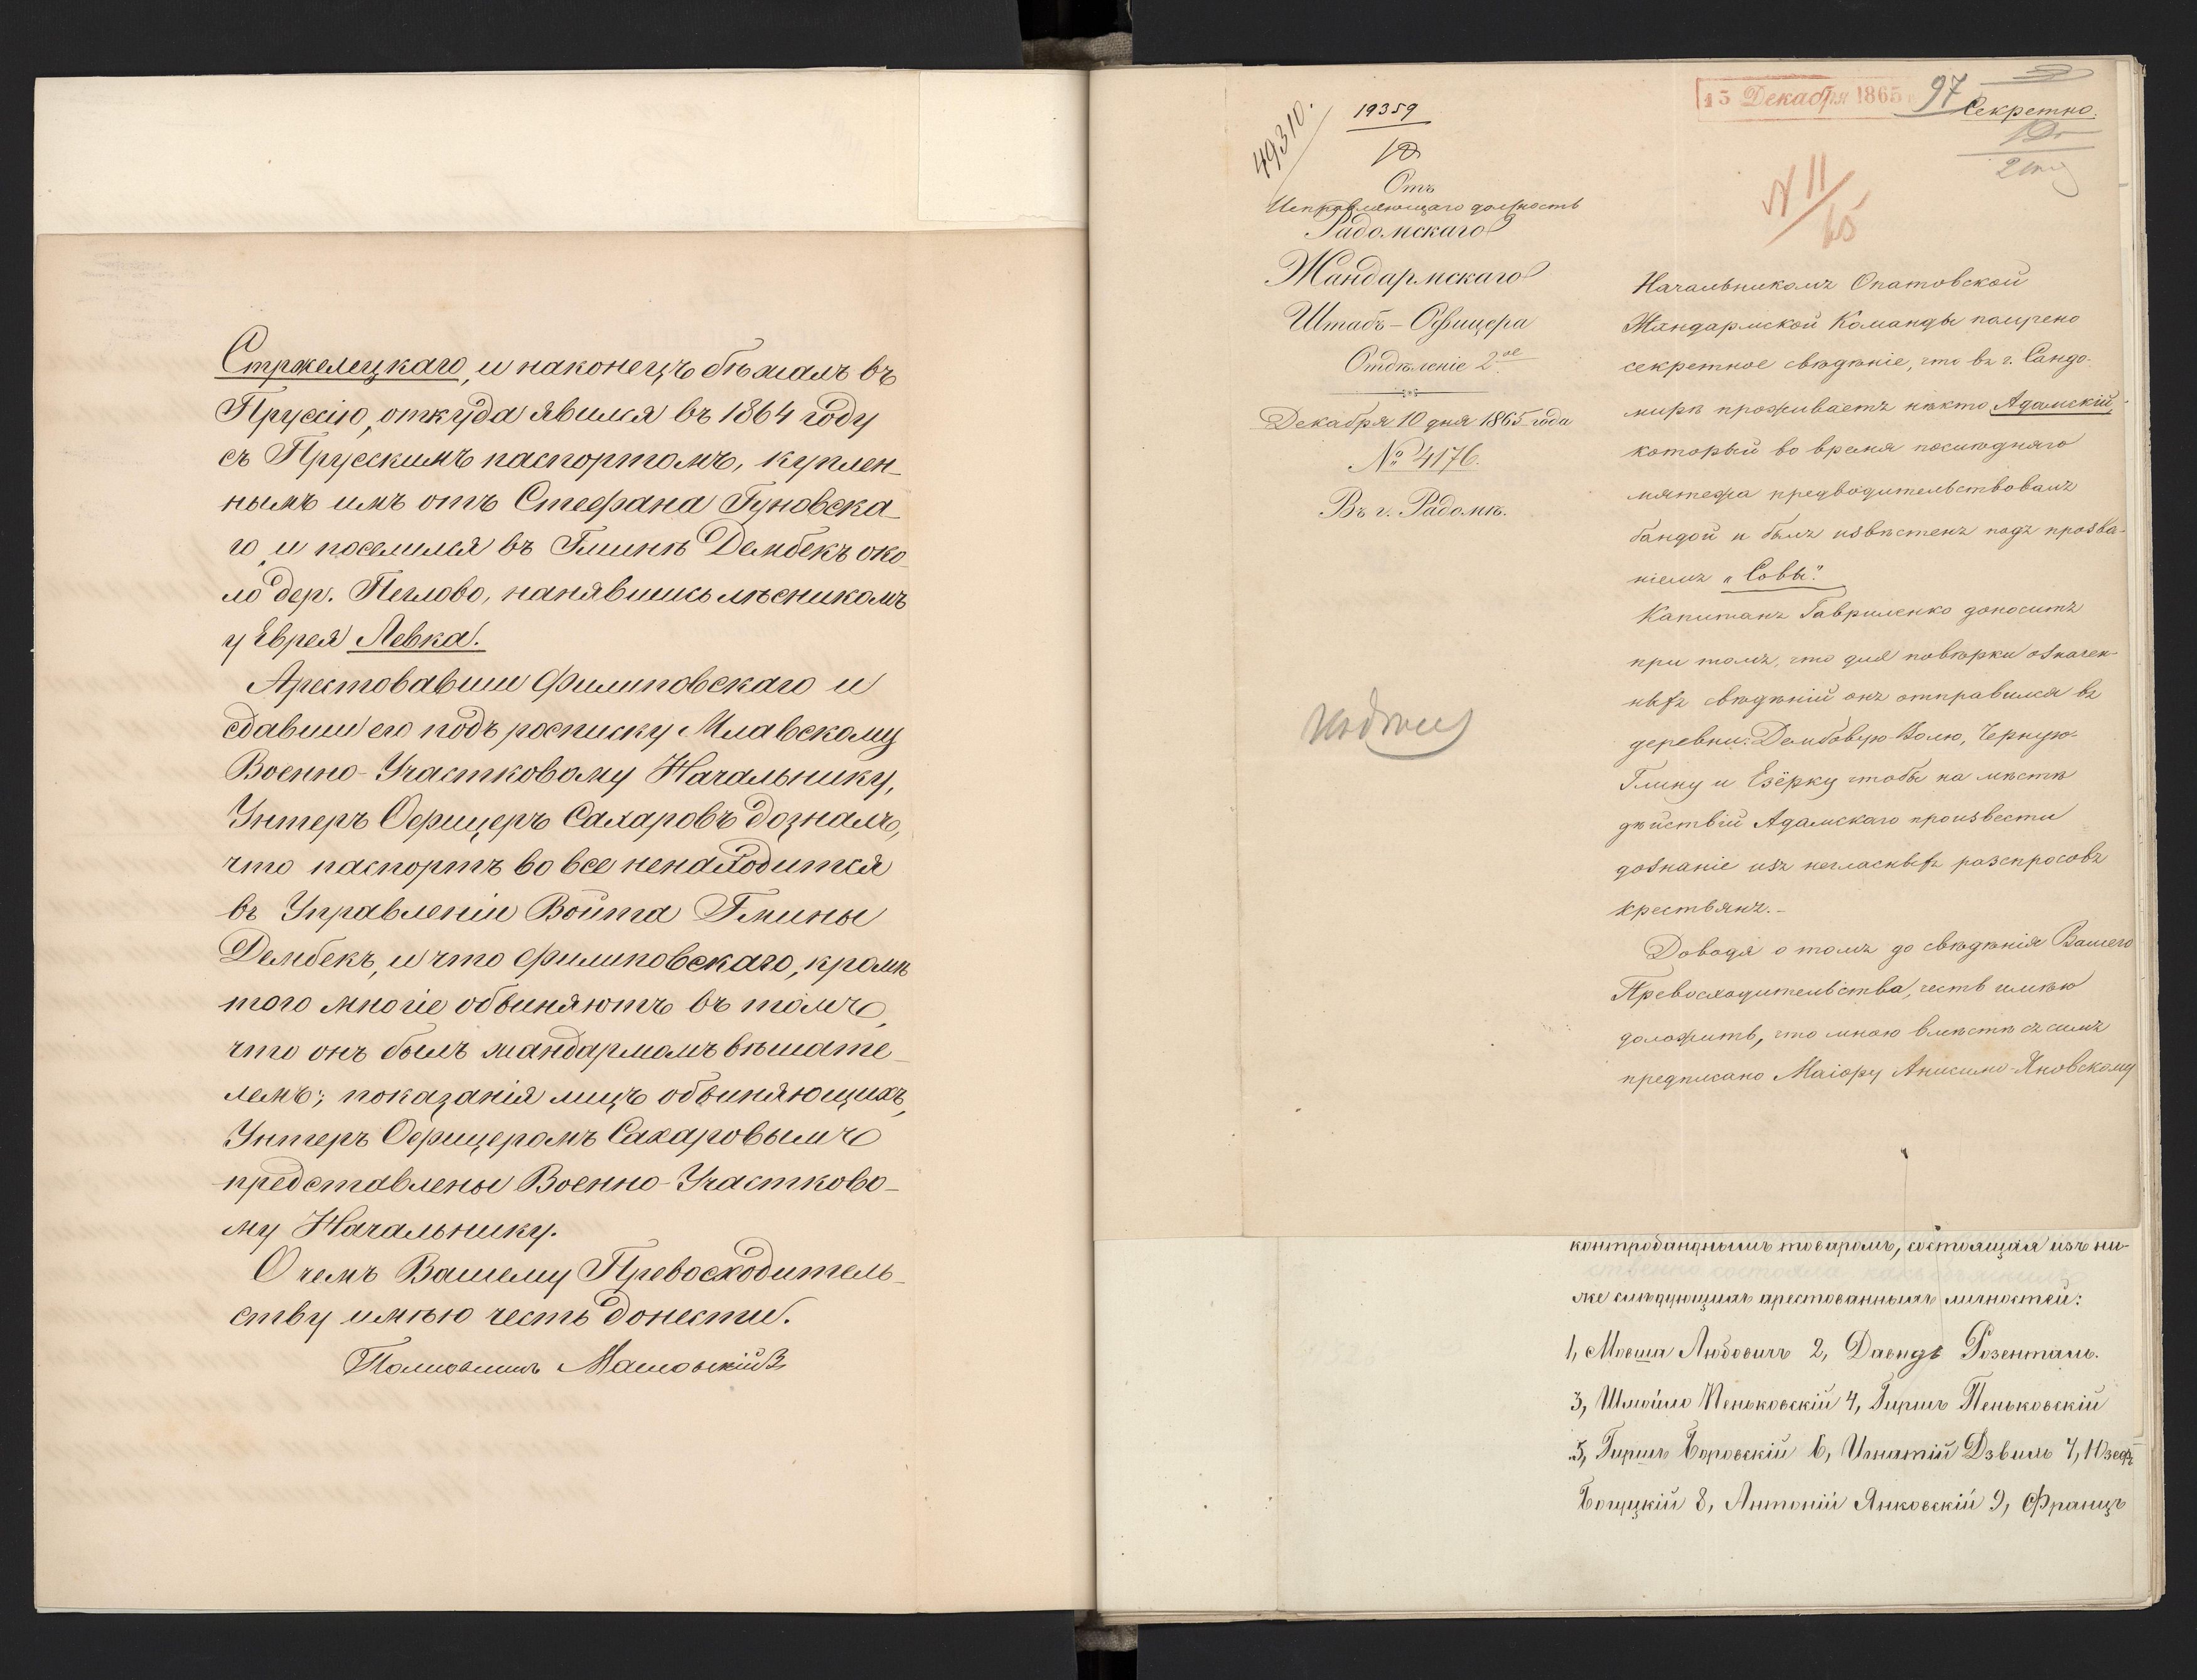 Стржелецкаго, и наконецъ бѣжалъ въ
Пруссію, откуда явился въ 1864 году
съ Прусскимъ паспортомъ, куплен-
нымъ имъ отъ Стефана Гуновска-
го и поселился въ Гминѣ Дембекъ око-
ло дер. Пеглово, нанявшись лѣсникомъ
у Еврея Левка.
Арестовавши Филиповскаго и
сдавши его подъ росписку Млавскому
Военно-Участковому Начальнику,
Унтеръ Офицеръ Сахаровъ дозналъ,
что паспортъ во все ненаходится
въ Управленіи Войта Гмины
Дембекъ, и что Филиповскаго, кромѣ
того многіе обвиняютъ въ томъ,
что онъ былъ жандармомъ вѣшате-
лемъ; показанія лицъ обвиняющихъ,
Унтеръ Офицеромъ Сахаровымъ
представлены Военно-Участково-
му Начальнику.
О чемъ Вашему Превосходитель-
ству имѣю честь донести.
Полковникъ
15 Декабря 1865
97
Секретно.
49310.
19359
Отъ
Исправляющаго должность
Радомскаго
Жандармскаго
Штабъ-Офицера
Отдѣленіе 2ое
Декабря 10 дня 1865 года
№ 4176.
Въ г. Радомѣ.
N 11/65
Начальникомъ Опатовской
Жандармской Команды получено
секретное свѣдѣніе, что въ г. Сандо-
мирѣ проживаетъ нѣкто Адамскій,
который во время послѣдняго
мятежа предводительствовалъ
бандой и былъ извѣстенъ подъ прозва-
ніемъ „Совы".
Капитанъ Гавриленко доноситъ
при томъ, что для повѣрки означен-
ныхъ свѣдѣній онъ отправился въ
деревни: Домбовую-Волю, Черную
Глину и Езёрку чтобы на мѣстѣ
дѣйствій Адамскаго произвести
дознаніе изъ негласныхъ разспросовъ
крестьянъ.-
Доводя о томъ до свѣдѣнія Вашего
Превосходительства, честь имѣю
доложить, что мною вмѣстѣ съ симъ
предписано Маіору Анисимо-Яновскому
контробанднымъ товаромъ, состоящая изъ ни-
же слѣдующихъ арестованныхъ личностей:
1, Мовша Любовичъ 2, Давидъ Розенталь.
3, Шмойло Пеньковскій 4, Гиршъ Пеньковскій
5, Гиршъ Боровскій 6, Игнатій Дзвиль 7, Юзефъ
Богуцкій 8, Антоній Янковскій 9, Францъ